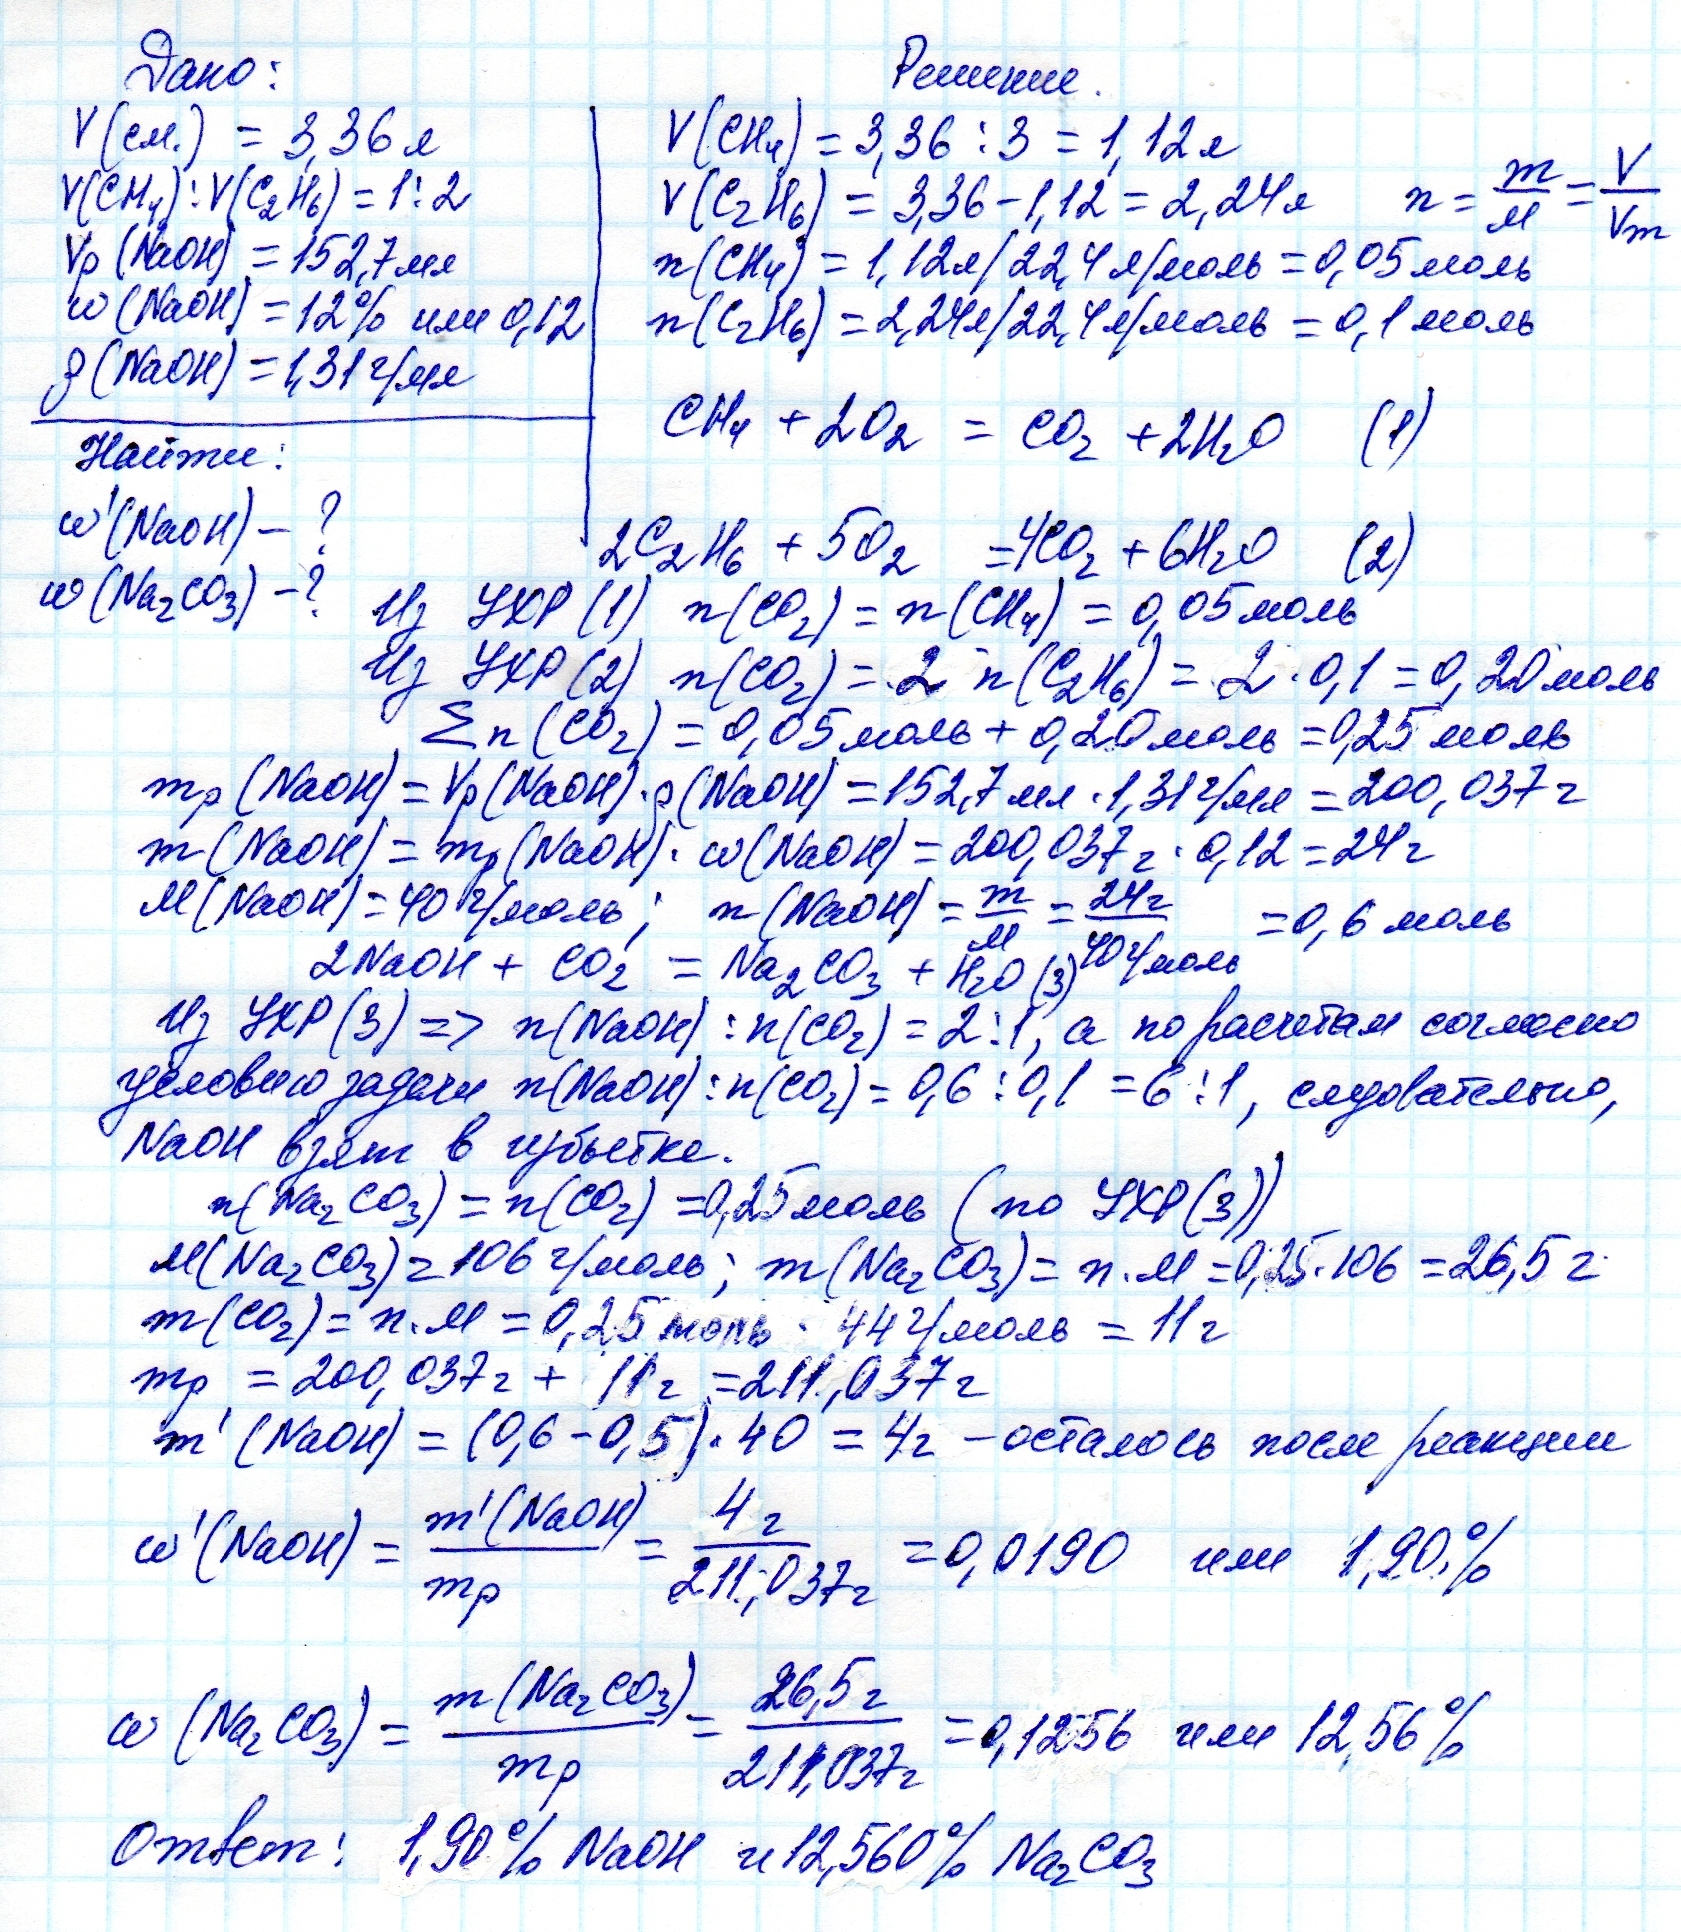 Дано:
V(см.) = 3,36 л
V(CH₄):V(C₂H₆) = 1:2
Vр(NaOH) = 152,7 мл
ω(NaOH) = 12% или 0,12
ρ(NaOH) = 1,31 г/мл
Найти:
ω'(NaOH) – ?
ω(Na₂CO₃) – ?
Решение.
V(CH₄) = 3,36 : 3 = 1,12 л
V(C₂H₆) = 3,36 – 1,12 = 2,24 л n = m/M = V/Vm
n(CH₄) = 1,12 л/22,4 л/моль = 0,05 моль
n(C₂H₆) = 2,24 л/22,4 л/моль = 0,1 моль
CH₄ + 2O₂ = CO₂ + 2H₂O (1)
2C₂H₆ + 5O₂ = 4CO₂ + 6H₂O (2)
Из УХР (1) n(CO₂) = n(CH₄) = 0,05 моль
Из УХР (2) n(CO₂) = 2 n(C₂H₆) = 2 · 0,1 = 0,20 моль
Σn(CO₂) = 0,05 моль + 0,20 моль = 0,25 моль
mр(NaOH) = Vр(NaOH)·ρ(NaOH) = 152,7 мл · 1,31 г/мл = 200,037 г
m(NaOH) = mр(NaOH) · ω(NaOH) = 200,037 г · 0,12 = 24 г
M(NaOH) = 40 г/моль; n(NaOH) = m/M = 24 г/40 г/моль = 0,6 моль
2NaOH + CO₂ = Na₂CO₃ + H₂O (3)
Из УХР (3) => n(NaOH) : n(CO₂) = 2:1, а по расчетам согласно
условию задачи n(NaOH):n(CO₂) = 0,6 : 0,1 = 6 : 1, следовательно,
NaOH взят в избытке.
n(Na₂CO₃) = n(CO₂) = 0,25 моль (по УХР(3))
M(Na₂CO₃) = 106 г/моль; m(Na₂CO₃) = n·M = 0,25·106 = 26,5 г
m(CO₂) = n·M = 0,25 моль · 44 г/моль = 11 г
mр = 200,037 г + 11 г = 211,037 г
m'(NaOH) = (0,6 – 0,5)·40 = 4 г – осталось после реакции
ω'(NaOH) = m'(NaOH)/mр = 4 г/211,037 г = 0,0190 или 1,90%
ω(Na₂CO₃) = m(Na₂CO₃)/mр = 26,5 г/211,037 г = 0,1256 или 12,56%
Ответ: 1,90% NaOH и 12,560% Na₂CO₃